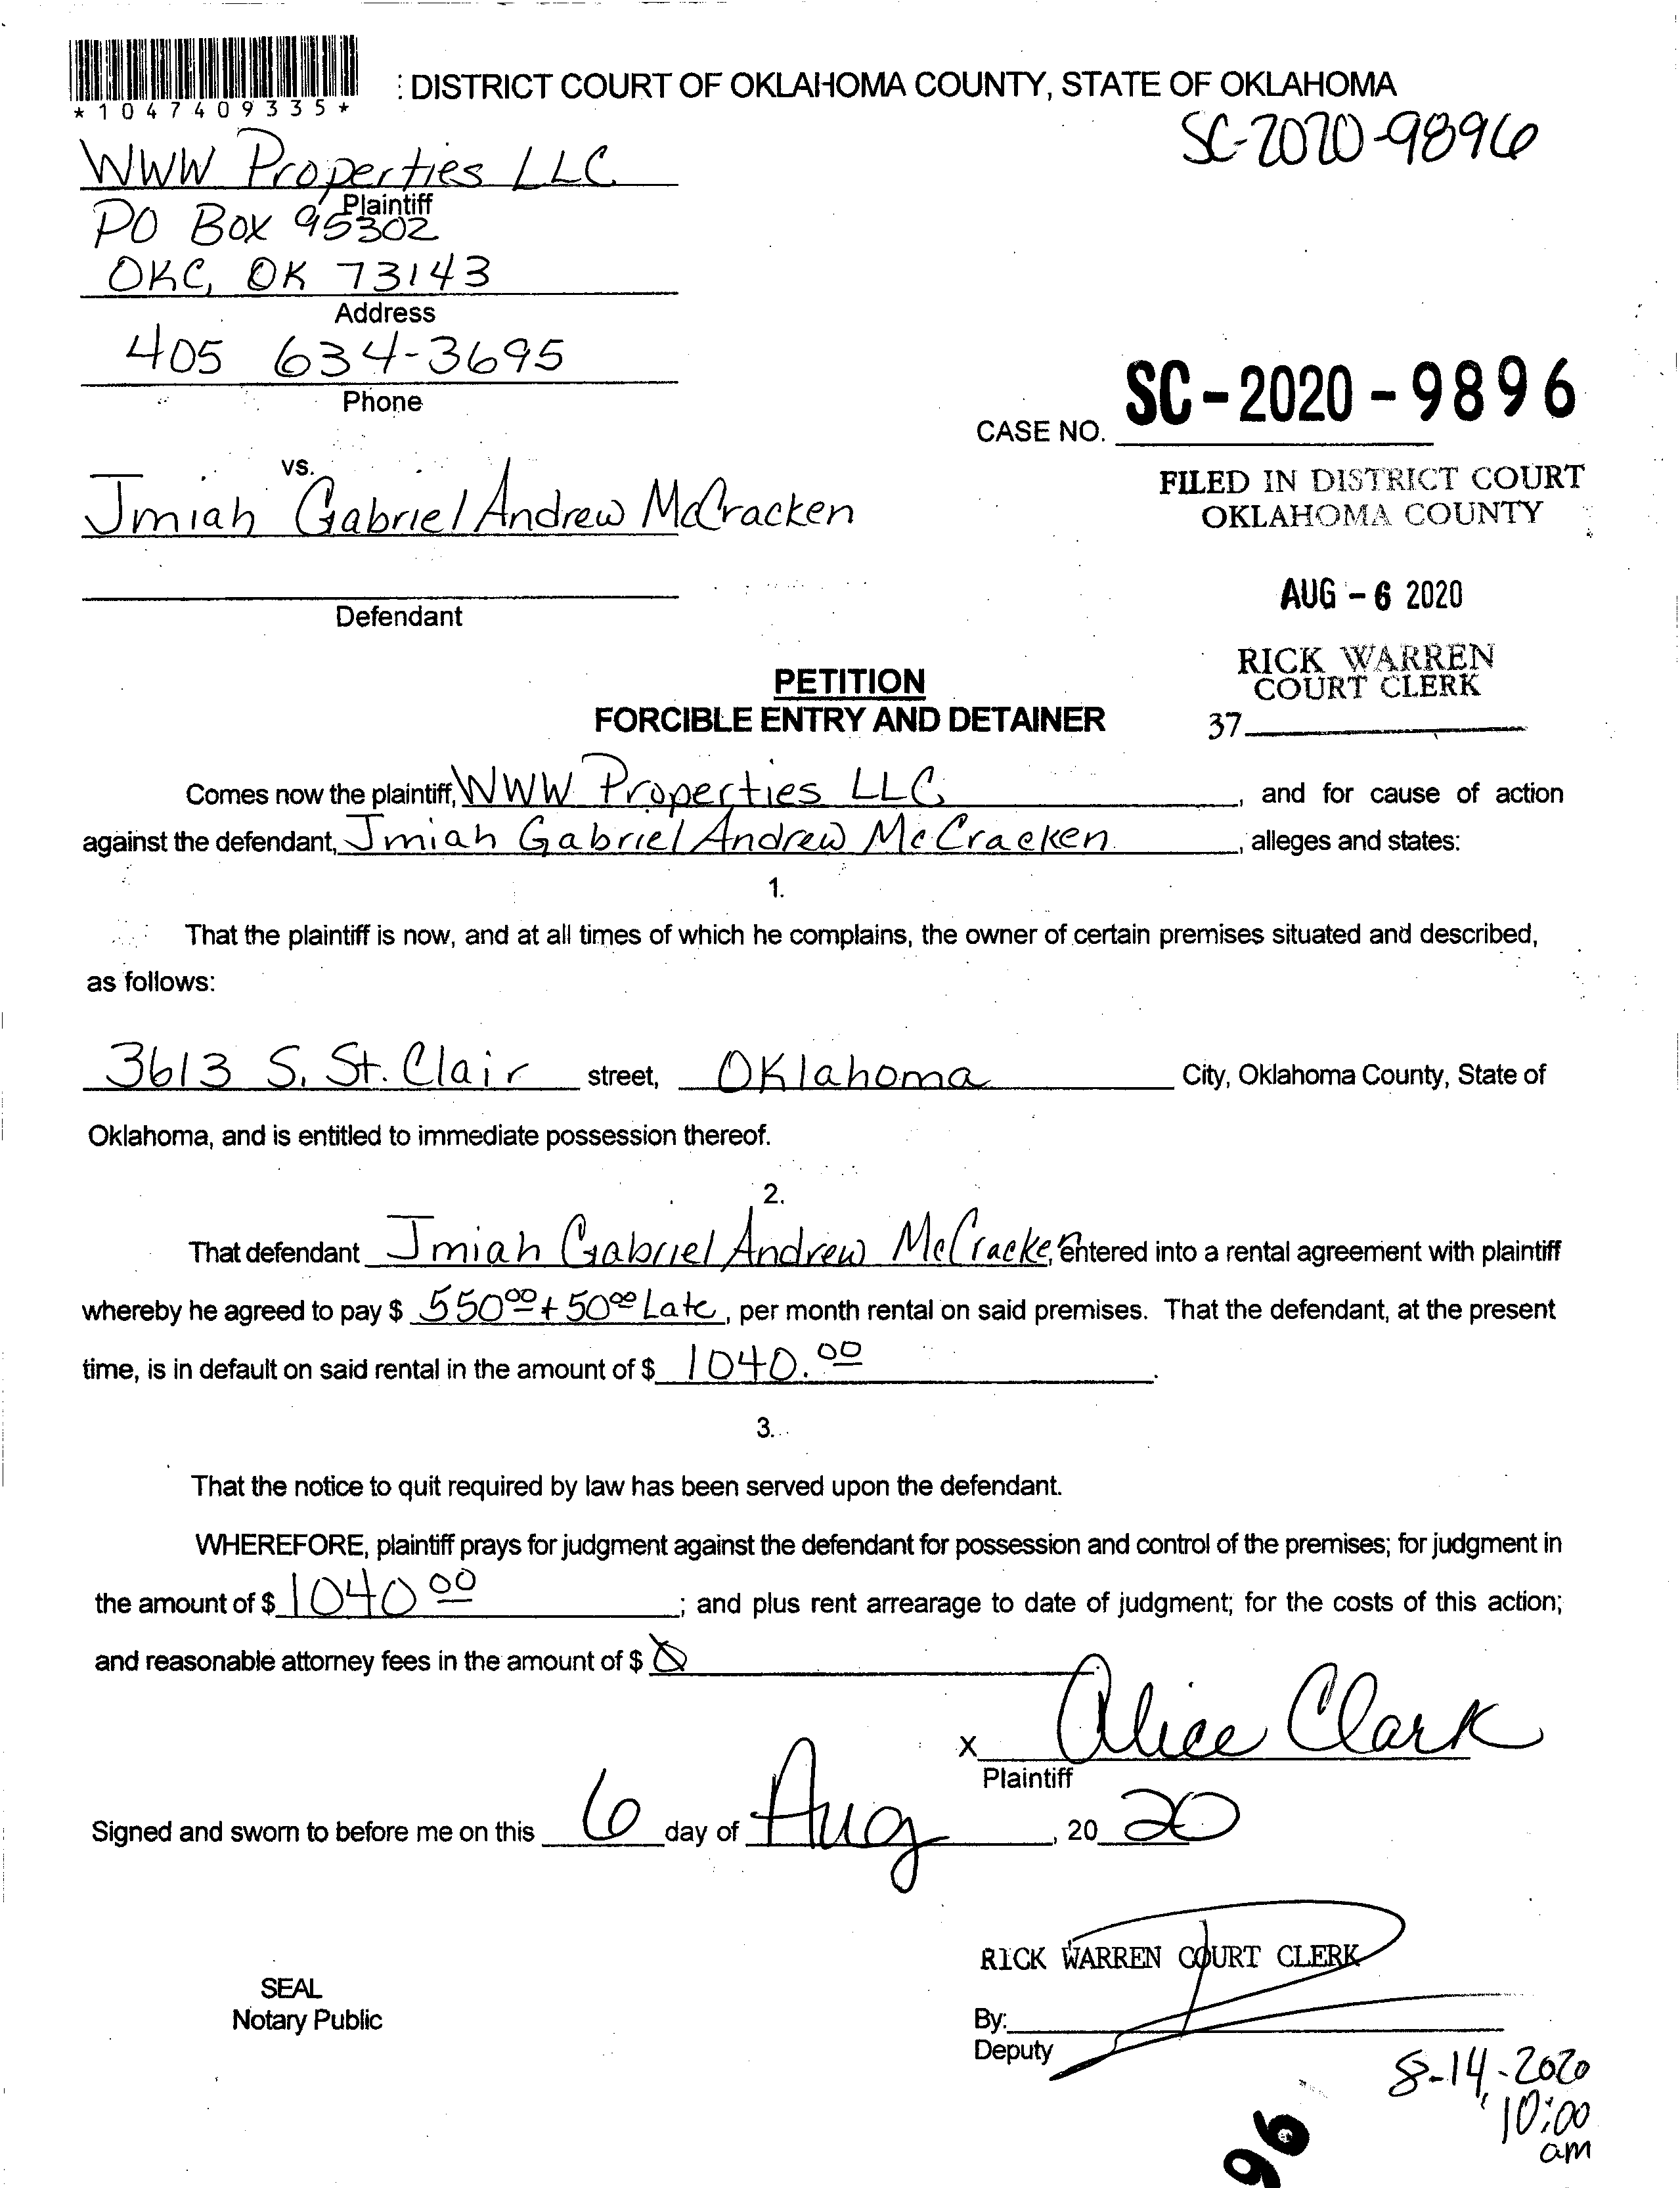 *1047409335*
: DISTRICT COURT OF OKLAHOMA COUNTY, STATE OF OKLAHOMA
SC-2020-9896
WWW Properties LLC
Plaintiff
PO Box 95302
OKC, OK 73143
Address
405 634-3695
Phone
CASE NO. SC-2020-9896
vs.
Jmiah Gabriel Andrew McCracken
FILED IN DISTRICT COURT
OKLAHOMA COUNTY
AUG - 6 2020
Defendant
RICK WARREN
COURT CLERK
37
PETITION
FORCIBLE ENTRY AND DETAINER
Comes now the plaintiff, WWW Properties LLC, and for cause of action
against the defendant, Jmiah Gabriel Andrew McCracken, alleges and states:
1.
That the plaintiff is now, and at all times of which he complains, the owner of certain premises situated and described,
as follows:
3613 S. St. Clair street, Oklahoma City, Oklahoma County, State of
Oklahoma, and is entitled to immediate possession thereof.
2.
That defendant Jmiah Gabriel Andrew McCracken, entered into a rental agreement with plaintiff
whereby he agreed to pay $ 550.00 + 50.00 Late, per month rental on said premises. That the defendant, at the present
time, is in default on said rental in the amount of $ 1040.00.
3.
That the notice to quit required by law has been served upon the defendant.
WHEREFORE, plaintiff prays for judgment against the defendant for possession and control of the premises; for judgment in
the amount of $ 1040 00; and plus rent arrearage to date of judgment; for the costs of this action;
and reasonable attorney fees in the amount of $ 0
x Alice Clark
Plaintiff
Signed and sworn to before me on this 6 day of Aug, 2020
RICK WARREN COURT CLERK
SEAL
Notary Public
By:
Deputy
8-14-2020
10:00
am
96